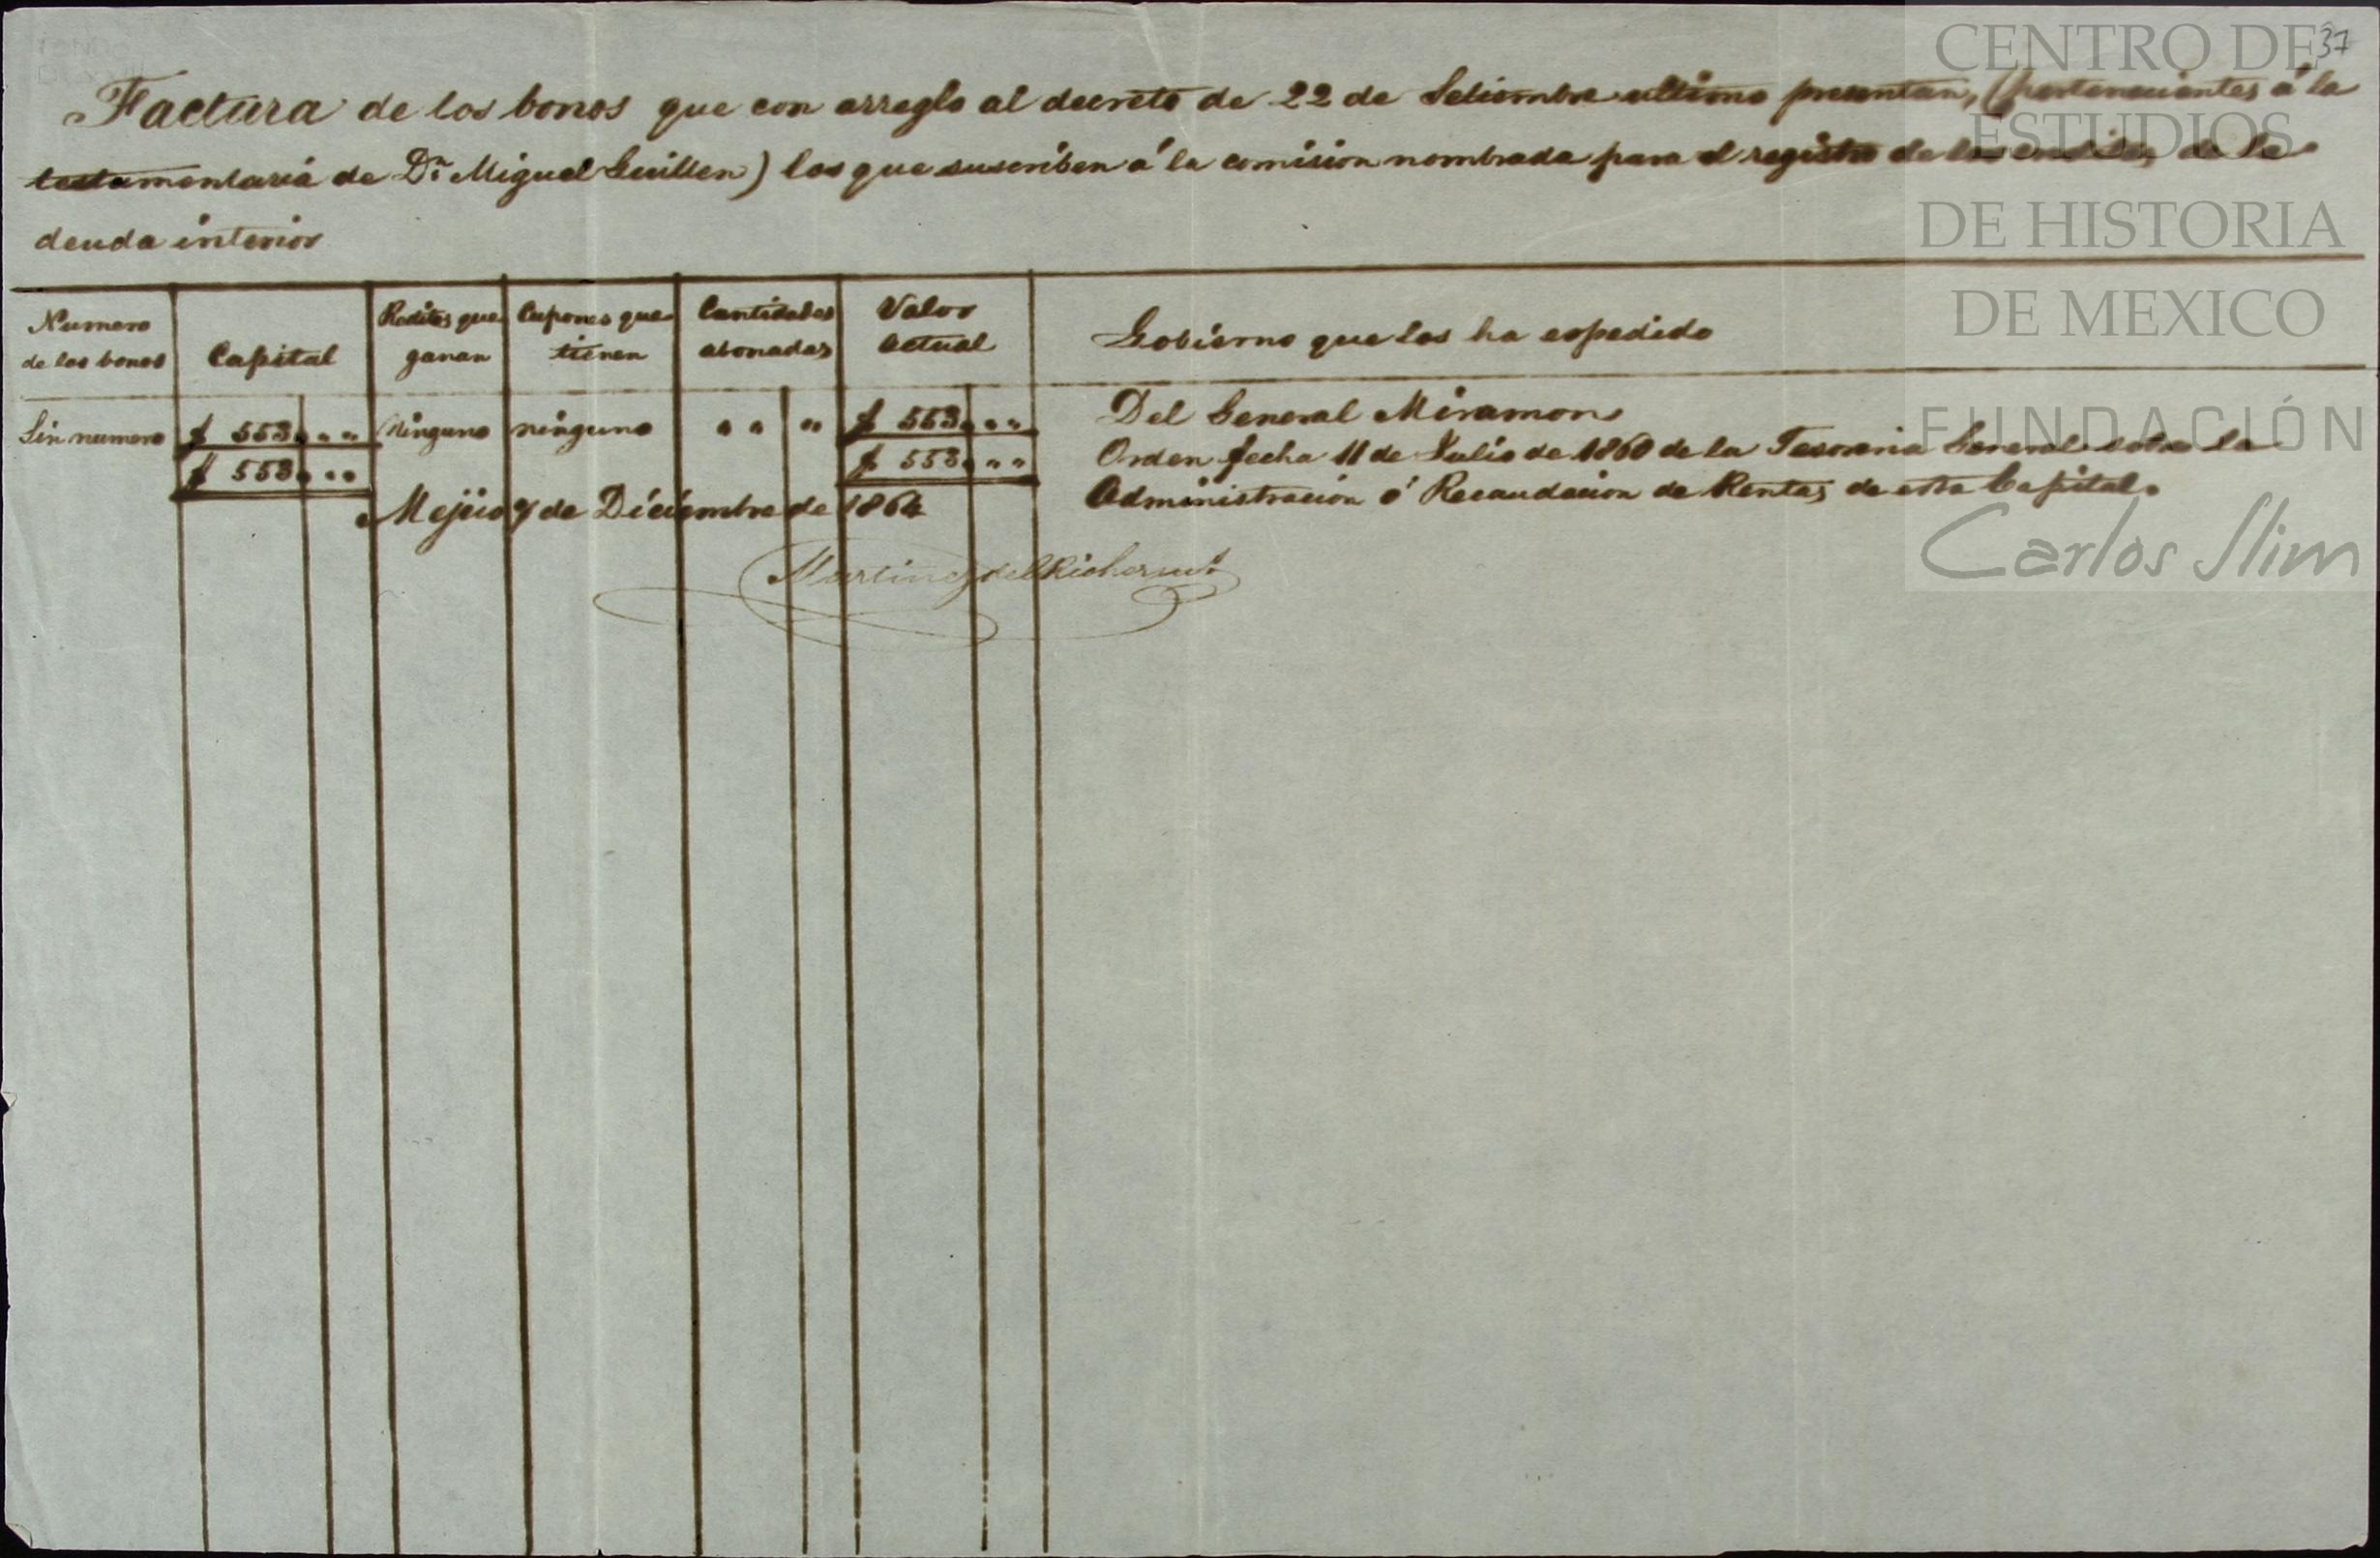 37
Factura de los bonos que con arreglo al decreto de 22 de Setiembre ultimo presentan, (pertenecientes á la
testamentaria de Dn. Miguel Guillen) los que suscriben á la comision nombrada para el registro de los creditos de la
deuda interior
Numero de los bonos
Capital
Reditos que ganan
Cupones que tienen
Cantidades abonadas
Valor actual
Gobierno que los ha espedido
Sin numero $ 553 " " Ninguno ninguno " " " $ 553 " " Del General Miramon
$ 553 " " $ 553 " " Orden fecha 11 de Julio de 1860 de la Tesoreria General sobre la
Administracion ó Recaudacion de Rentas de esta Capital.
Mejico 7 de Diciembre de 1864
Martinez del Rio herms
CENTRO DE
ESTUDIOS
DE HISTORIA
DE MEXICO
FUNDACIÓN
Carlos Slim